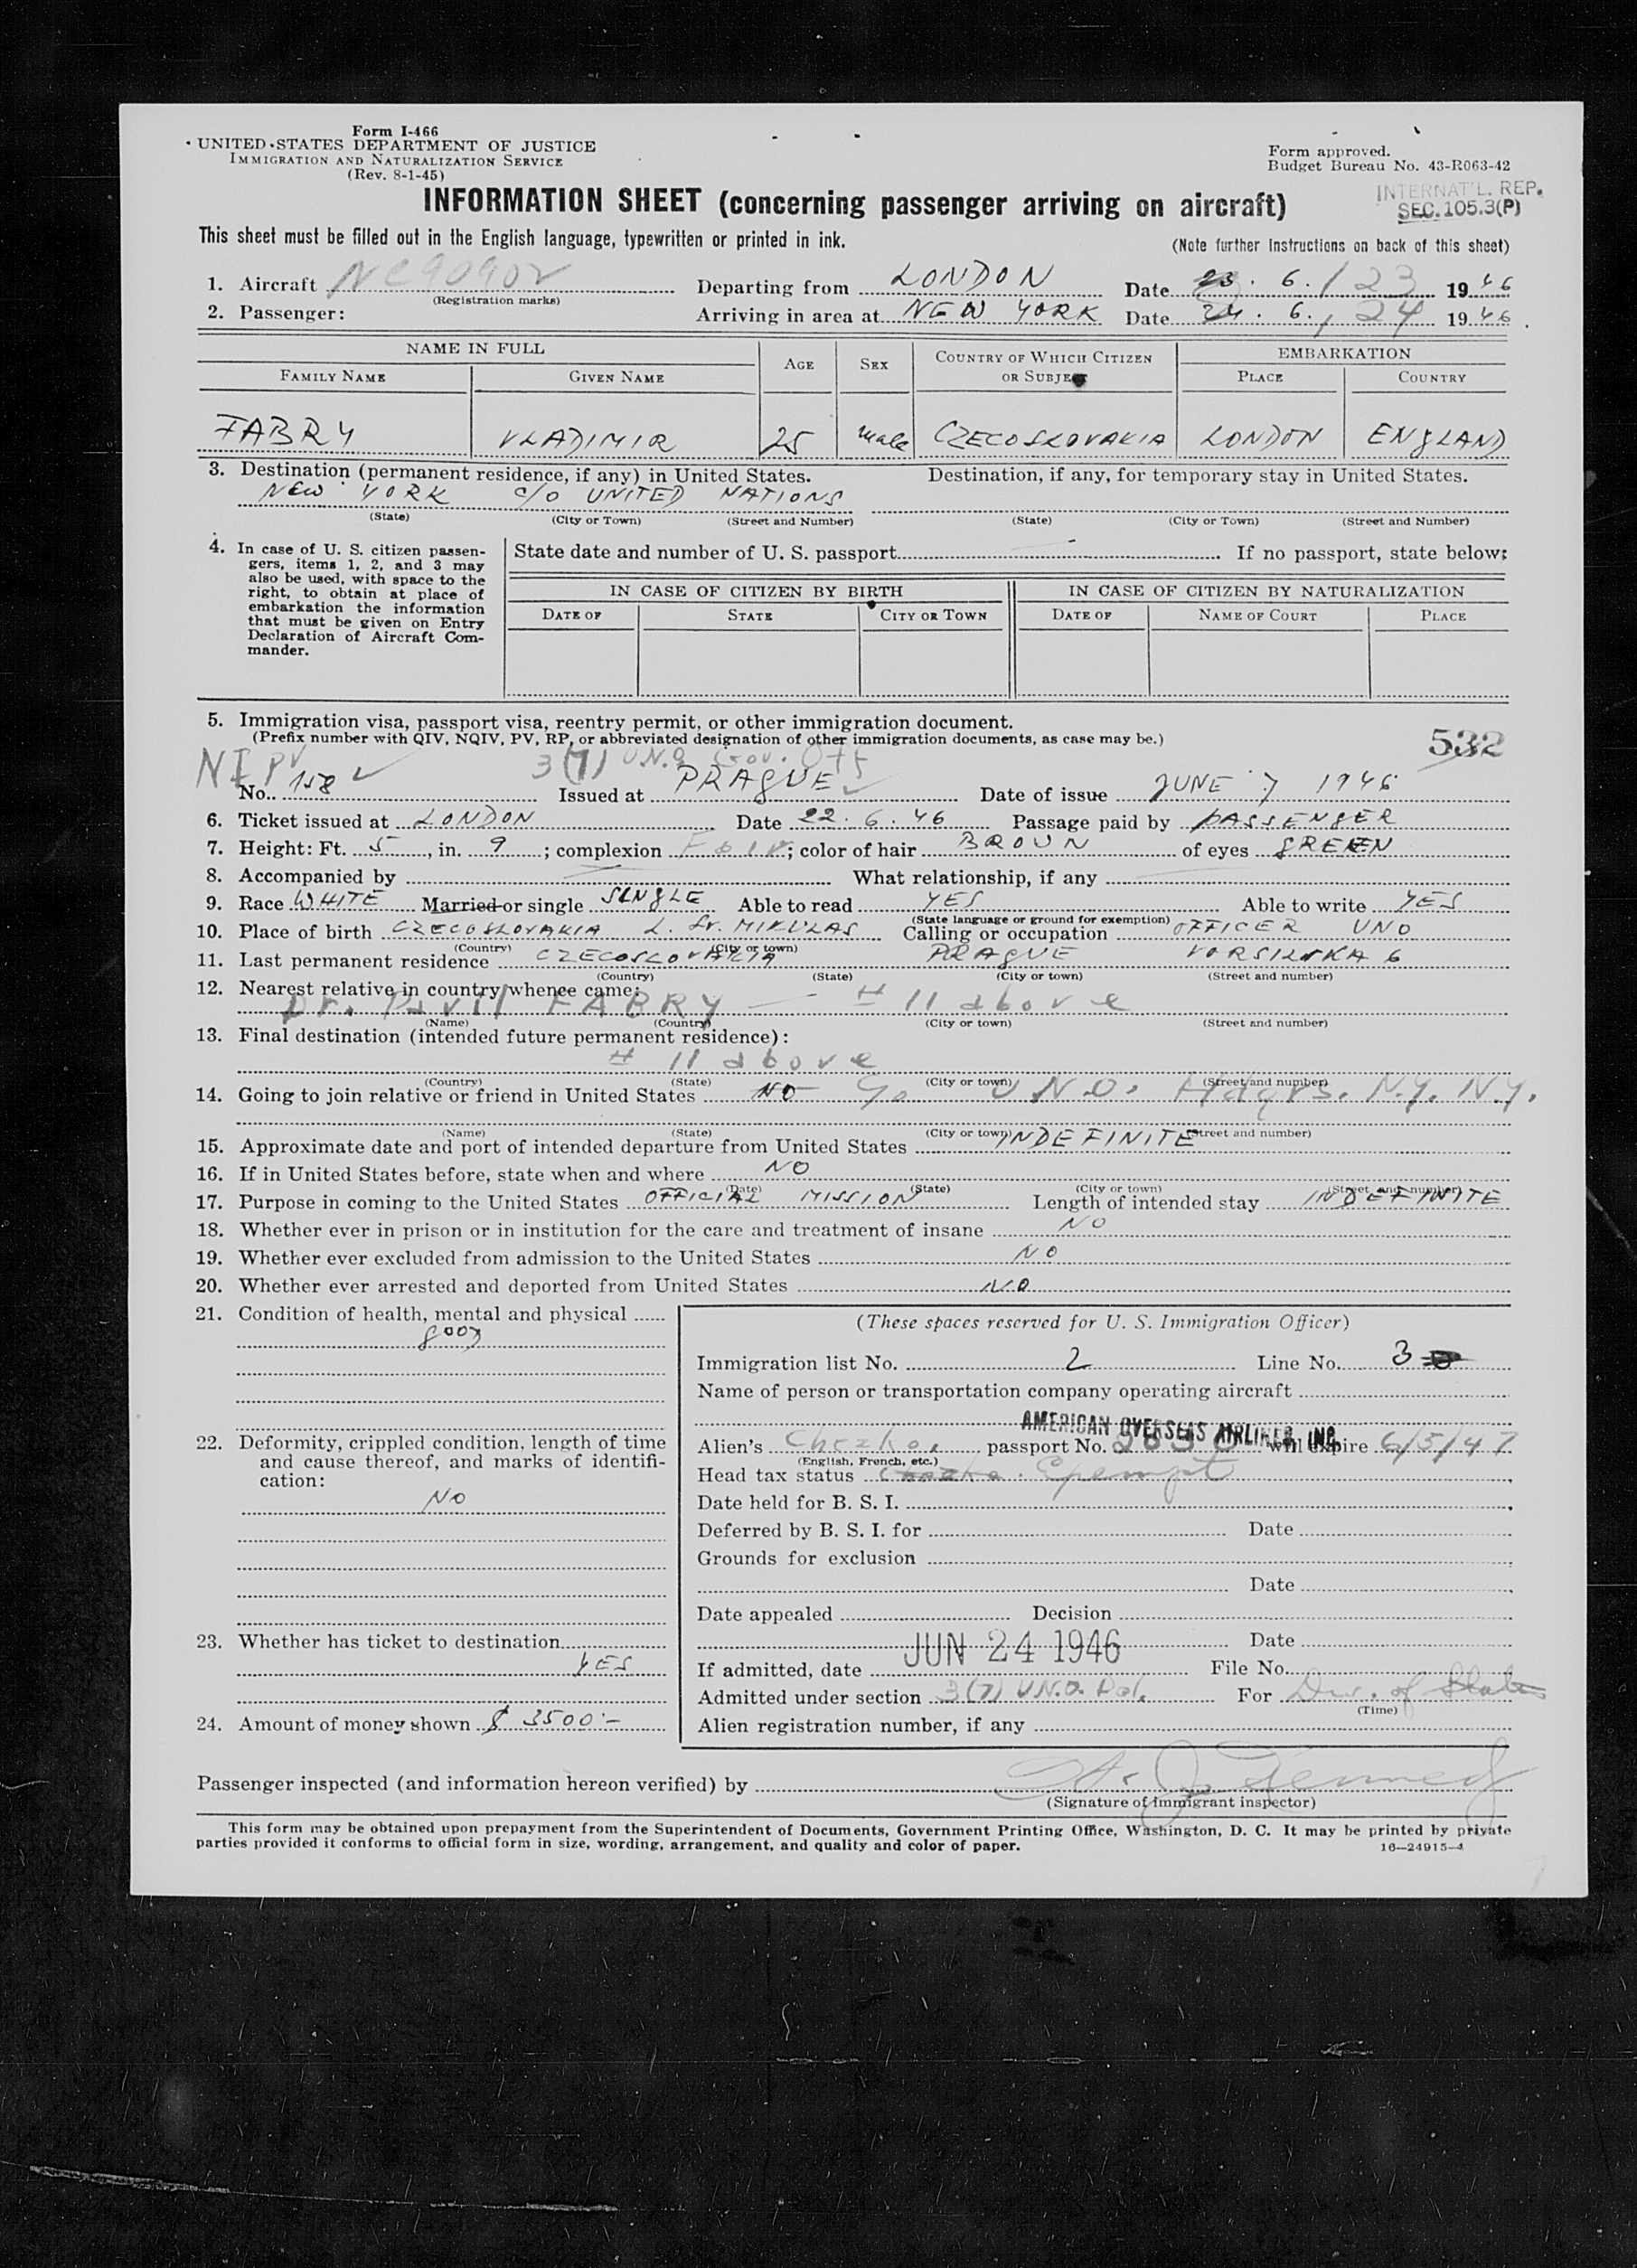 Form I-466
UNITED STATES DEPARTMENT OF JUSTICE
IMMIGRATION AND NATURALIZATION SERVICE
(Rev. 8-1-45)
Form approved.
Budget Bureau No. 43-R063-42
INTERNAT'L. REP.
SEC. 105.3(P)
INFORMATION SHEET (concerning passenger arriving on aircraft)
This sheet must be filled out in the English language, typewritten or printed in ink.
(Note further instructions on back of this sheet)
1. Aircraft NC90902 Departing from LONDON Date 23. 6. / 23 1946
(Registration marks)
2. Passenger: Arriving in area at NEW YORK Date 24. 6., 24 1946
NAME IN FULL AGE SEX COUNTRY OF WHICH CITIZEN OR SUBJECT EMBARKATION
FAMILY NAME GIVEN NAME PLACE COUNTRY
FABRY VLADIMIR 25 Male CZECOSLOVAKIA LONDON ENGLAND
3. Destination (permanent residence, if any) in United States. Destination, if any, for temporary stay in United States.
NEW YORK c/o UNITED NATIONS
(State) (City or Town) (Street and Number) (State) (City or Town) (Street and Number)
4. In case of U. S. citizen passen-
gers, items 1, 2, and 3 may
also be used, with space to the
right, to obtain at place of
embarkation the information
that must be given on Entry
Declaration of Aircraft Com-
mander.
State date and number of U. S. passport If no passport, state below:
IN CASE OF CITIZEN BY BIRTH IN CASE OF CITIZEN BY NATURALIZATION
DATE OF STATE CITY OR TOWN DATE OF NAME OF COURT PLACE
5. Immigration visa, passport visa, reentry permit, or other immigration document.
(Prefix number with QIV, NQIV, PV, RP, or abbreviated designation of other immigration documents, as case may be.)
532
NI PV 3(7) U.N.O Gov. Off
No. 158 Issued at PRAGUE Date of issue JUNE 7 1946
6. Ticket issued at LONDON Date 22. 6. 46 Passage paid by PASSENGER
7. Height: Ft. 5, in. 9; complexion Fair; color of hair BROUN of eyes GREEEN
8. Accompanied by What relationship, if any
9. Race WHITE Married or single SINGLE Able to read YES Able to write YES
(State language or ground for exemption)
10. Place of birth CZECOSLOVAKIA L. Sv. MIKULAS Calling or occupation OFFICER UNO
(Country) (City or town)
11. Last permanent residence CZECOSLOVAKIA PRAGUE VORSILSKA 6
(Country) (State) (City or town) (Street and number)
12. Nearest relative in country whence came:
Dr. Pavil FABRY — # 11 above
(Name) (Country) (City or town) (Street and number)
13. Final destination (intended future permanent residence):
# 11 above
(Country) (State) (City or town) (Street and number)
14. Going to join relative or friend in United States NO c/o U.N.O. Hdqrs. N.Y. N.Y.
(Name) (State) (City or town) (Street and number)
15. Approximate date and port of intended departure from United States INDEFINITE
16. If in United States before, state when and where NO
(Date) (State) (City or town) (Street and number)
17. Purpose in coming to the United States OFFICIAL MISSION Length of intended stay INDEFINITE
18. Whether ever in prison or in institution for the care and treatment of insane NO
19. Whether ever excluded from admission to the United States NO
20. Whether ever arrested and deported from United States NO
21. Condition of health, mental and physical
good
22. Deformity, crippled condition, length of time
and cause thereof, and marks of identifi-
cation:
NO
23. Whether has ticket to destination
YES
24. Amount of money shown $ 3500.-
(These spaces reserved for U. S. Immigration Officer)
Immigration list No. 2 Line No. 3
Name of person or transportation company operating aircraft
AMERICAN OVERSEAS AIRLINES, INC.
Alien's Chezko. passport No. will expire 6/5/47
(English, French, etc.)
Head tax status Exempt
Date held for B. S. I.
Deferred by B. S. I. for Date
Grounds for exclusion
Date
Date appealed Decision
Date
If admitted, date JUN 24 1946 File No.
Admitted under section 3(7) U.N.O. Del. For Dur. of Status
(Time)
Alien registration number, if any
Passenger inspected (and information hereon verified) by
(Signature of immigrant inspector)
This form may be obtained upon prepayment from the Superintendent of Documents, Government Printing Office, Washington, D. C. It may be printed by private
parties provided it conforms to official form in size, wording, arrangement, and quality and color of paper.
16—24915-4